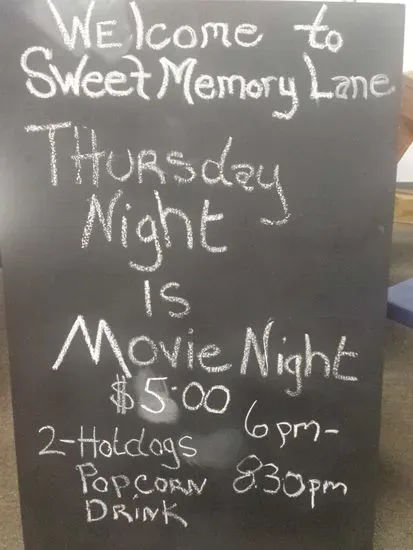 WElcome to
Sweet Memory Lane
THURSday
Night
IS
Movie Night
$5.00
6pm-
2-Hotdogs
POPCORN 8:30pm
DRiNK